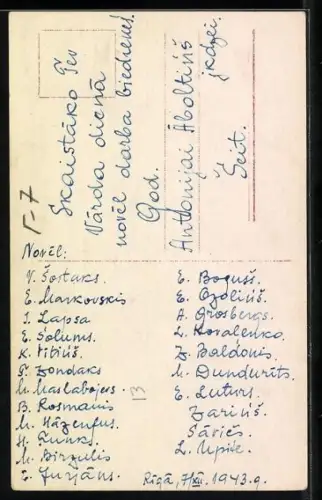 Skaistāko Tev
Vārda dienā
novēl darba biedrenei
God.
Antonijai Āboltiņš
jkdzei.
Šeit.
Г-7
Novēl:
V. Šostaks.
E. Markovskis
J. Lapsa
E. Šolums.
K. Vībiņš
P. Zondaks
M. Maslabojevs.
B. Rosmanis
M. Häzenfus.
H. Funks.
M. Birzulis
E. Jurjāns.
E. Bogušs.
E. Ozoliņš
A. Grosbergs.
L. Kovalenko.
Z. Baldonis.
M. Dundurīts.
E. Luturs.
Zariņš
Sāviēs.
L. Upīte.
13
Rīgā, 7/XII. 1943.g.